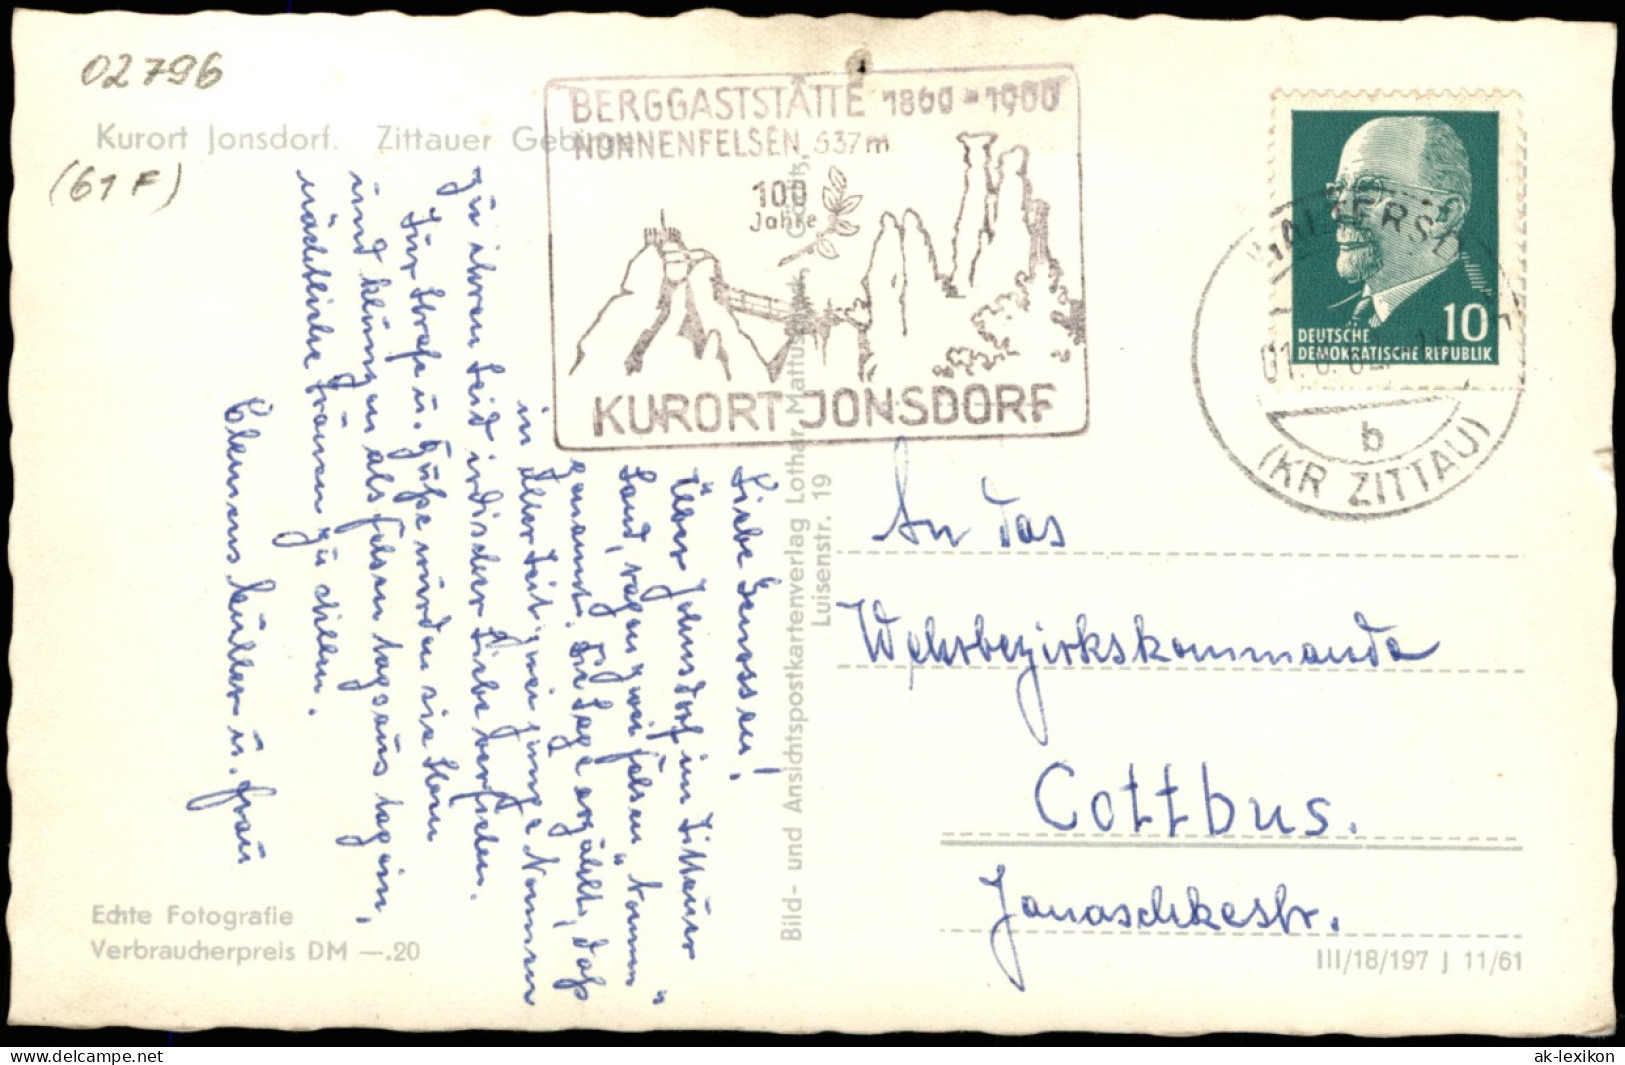 02796
Kurort Jonsdorf. Zittauer Gebirge
(61 F)
BERGGASTSTÄTTE 1860-1960
NONNENFELSEN 537m
100
Jahre
KURORT JONSDORF
10
DEUTSCHE
DEMOKRATISCHE REPUBLIK
b
(KR ZITTAU)
Liebe Genossen!
Über Johnsdorf im Zittauer
Land, ragen zwei Felsen "Nonnen"
genannt. Die Sage erzählt, daß
in alter Zeit zwei junge Nonnen
zu ihrem Leid irdischer Liebe verfielen.
Zur Strafe u. Buße wurden sie Stein
und klingen als Felsen tagaus tagein,
nächtliche Träumen zu
Clemens Müller u. Frau
Bild- und Ansichtspostkartenverlag Lothar
Luisenstr. 19
An das
Wehrbezirkskommando
Cottbus.
Janaschkestr.
Echte Fotografie
Verbraucherpreis DM —.20
III/18/197 J 11/61
www.delcampe.net
ak-lexikon